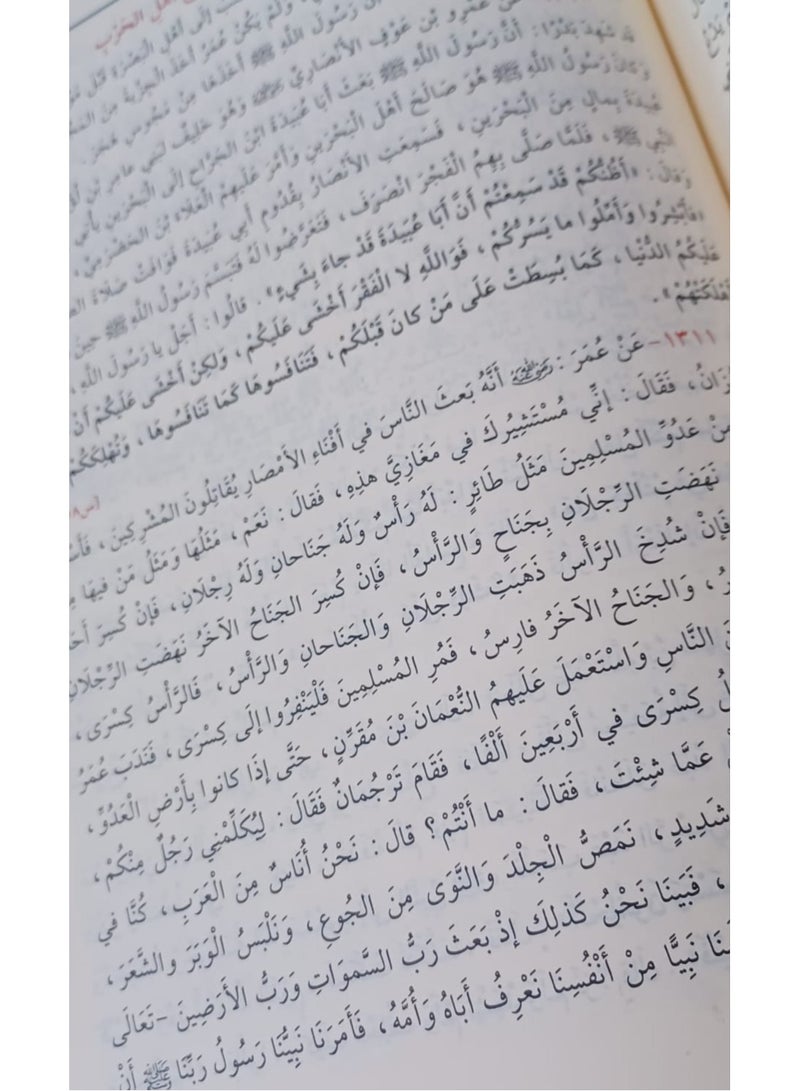 أهل الحرب
إلى أهل البصرة قبل
ولم يكن عمر أخذ الجزية من
أن رسول الله ﷺ أخذها من مجوس هجر.
عمرو بن عوف الأنصاري رضي الله عنه وهو حليف لبني عامر بن
قد شهد بدرا: أن رسول الله ﷺ بعث أبا عبيدة ابن الجراح إلى البحرين يأتي
وكان رسول الله ﷺ هو صالح أهل البحرين وأمر عليهم العلاء بن الحضرمي،
عبيدة بمال من البحرين، فسمعت الأنصار بقدوم أبي عبيدة فوافت صلاة
النبي ﷺ، فلما صلى بهم الفجر انصرف، فتعرضوا له فتبسم رسول الله ﷺ حين
وقال: «أظنكم قد سمعتم أن أبا عبيدة قد جاء بشيء». قالوا: أجل يا رسول الله،
«فأبشروا وأملوا ما يسركم، فوالله لا الفقر أخشى عليكم، ولكن أخشى عليكم أن
عليكم الدنيا، كما بسطت على من كان قبلكم، فتنافسوها كما تنافسوها، وتهلككم
أهلكتهم».
١٣١١- عَنْ عُمَرَ: رضي الله عنه أَنَّهُ بَعَثَ النَّاسَ فِي أَفْنَاءِ الأَمْصَارِ يُقَاتِلُونَ المُشْرِكِينَ،
فَقَالَ: إِنِّي مُسْتَشِيرُكَ فِي مَغَازِيَّ هذِهِ، فَقَالَ: نَعَمْ، مَثَلُهَا وَمَثَلُ مَنْ فِيهَا
مِنْ عَدُوِّ المُسْلِمِينَ مَثَلُ طَائِرٍ: لَهُ رَأْسٌ وَلَهُ جَنَاحانِ وَلَهُ رِجْلَانِ، فَإِنْ كُسِرَ
نَهَضَتِ الرِّجْلَانِ بِجَنَاحٍ وَالرَّأْسُ، فَإِنْ كُسِرَ الجَنَاحُ الآخَرُ نَهَضَتِ الرِّجْلَانِ
فَإِنْ شُدِخَ الرَّأْسُ ذَهَبَتِ الرِّجْلَانِ وَالجَنَاحانِ وَالرَّأْسُ، فَالرَّأْسُ كِسْرَى،
وَالجَنَاحُ الآخَرُ فارِسُ، فَمُرِ المُسْلِمِينَ فَلْيَنْفِرُوا إِلَى كِسْرَى، فَنَدَبَ عُمَرُ
النَّاسِ وَاسْتَعْمَلَ عَلَيْهِمُ النُّعْمَانَ بْنَ مُقَرِّنٍ، حَتَّى إِذَا كانُوا بِأَرْضِ الْعَدُوِّ،
كِسْرَى فِي أَرْبَعِينَ أَلْفًا، فَقَامَ تَرْجُمَانٌ فَقَالَ: لِيُكَلِّمْنِي رَجُلٌ مِنْكُمْ،
عَمَّا شِئْتَ، فَقَالَ: ما أَنْتُمْ؟ قالَ: نَحْنُ أُنَاسٌ مِنَ الْعَرَبِ، كُنَّا فِي
شَدِيدٍ، نَمَصُّ الْجِلْدَ وَالنَّوَى مِنَ الجُوعِ، وَنَلْبَسُ الْوَبَرَ والشَّعَرَ،
فَبَيْنَا نَحْنُ كَذلِكَ إِذْ بَعَثَ رَبُّ السَّموَاتِ وَرَبُّ الأَرَضِينَ -تَعَالَى
نَبِيًّا مِنْ أَنْفُسِنَا نَعْرِفُ أَبَاهُ وَأُمَّهُ، فَأَمَرَنَا نَبِيُّنَا رَسُولُ رَبِّنَا ﷺ أَنْ